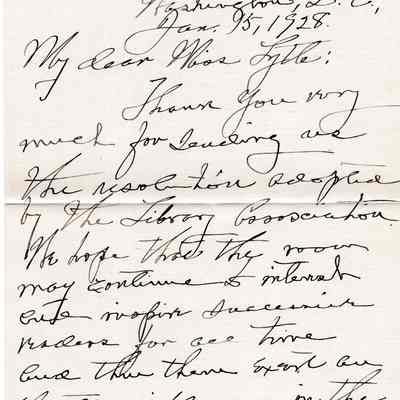 Washington, D. C.,
Jan. 15, 1928.
My dear Miss Lytle:
Thank you very
much for sending us
the resolution adopted
by the Library Association.
We hope that the room
may continue to interest
and inspire successive
readers for all time
and thus them exert an
in the